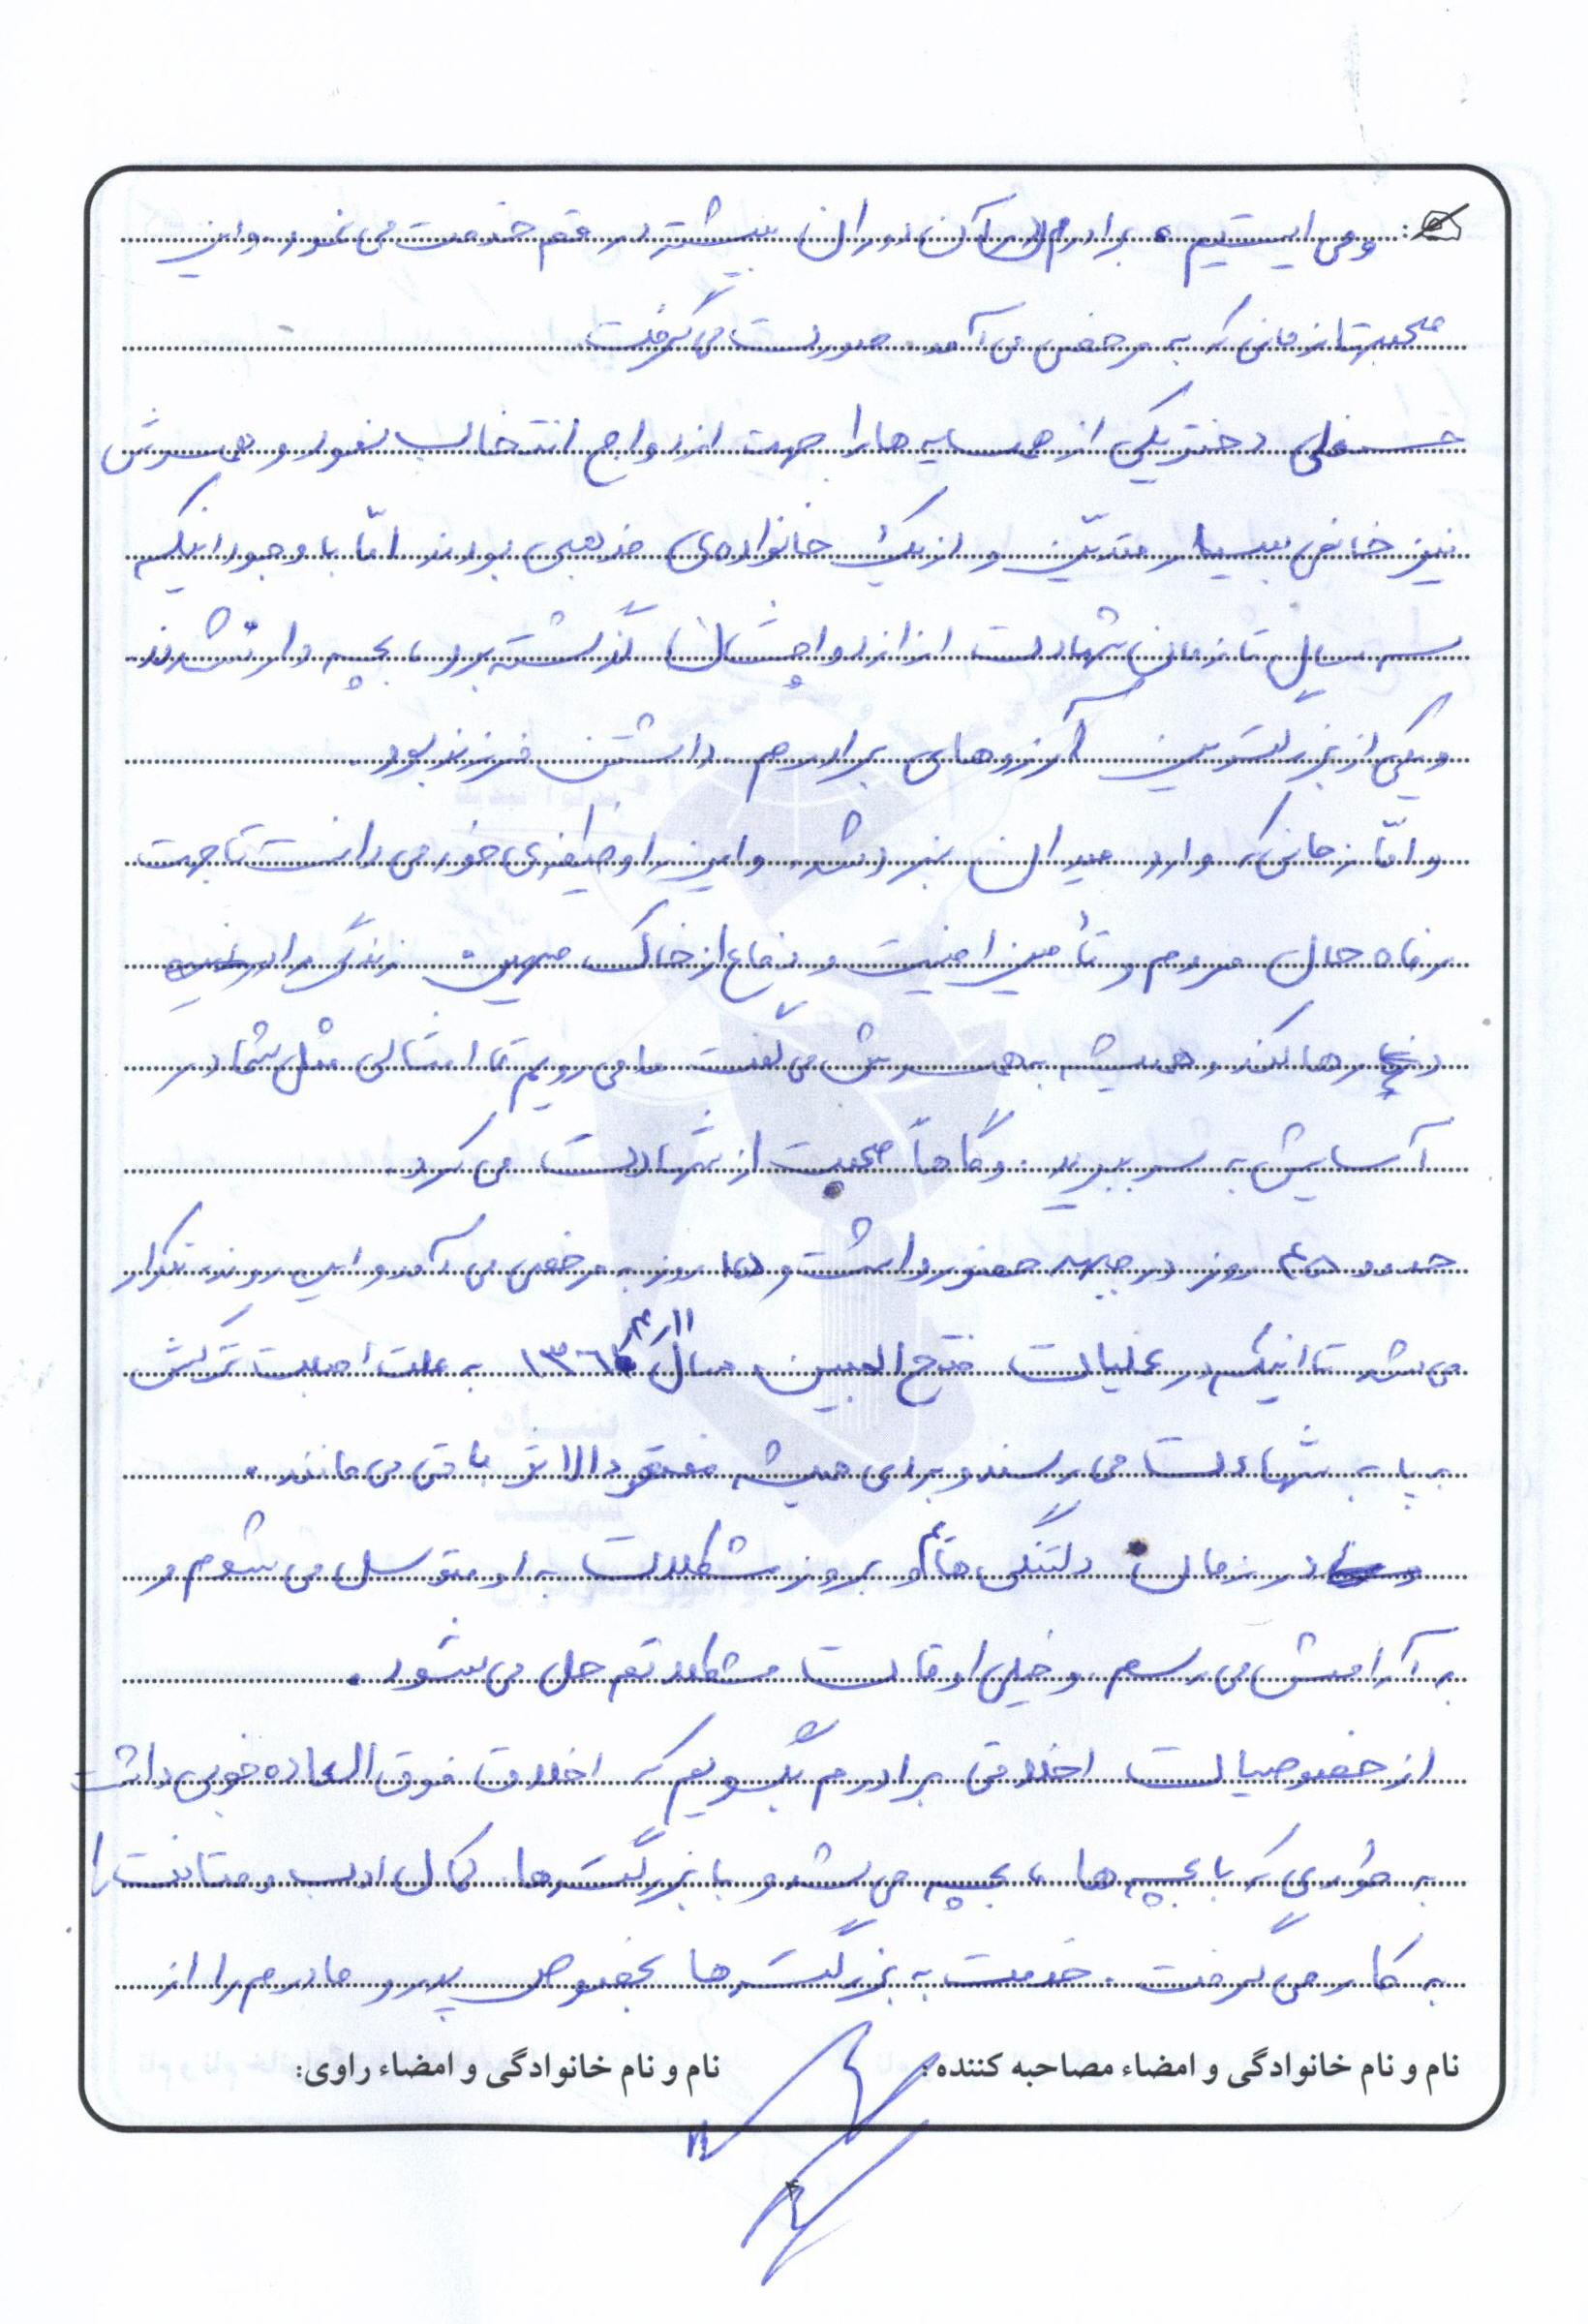 و می ایستیم ، برادرم در آن دوران بیشتر در قم خدمت می نمود. و این
صحبتها زمانی که به مرخصی می آمد. صورت می گرفت.
حسنعلی دختر یکی از همسایه ها را جهت ازدواج انتخاب نمود و همسرش
نیز خانمی بسیار متدیّن و از یک خانواده‌ی مذهبی بودند امّا با وجود اینکه
سه سال تا زمان شهادت از ازدواجشان گذشته بود، بچه دار نشدند
و یکی از بزرگترین آرزوهای برادرم داشتن فرزند بود.
و امّا زمانی که وارد میدان نبرد شد. و این را وظیفه‌ی خود می دانست تا جهت
رفاه حال مردم و تأمین امنیت و دفاع از خاک میهن زندگی را در
رها کند و همیشه به همسرش می گفت ما می رویم تا امثالی مثل شما در
آسایش به سر ببرید. و گاهاً صحبت از شهادت می کرد.
حدود ۴۵ روز در جبهه حضور داشت و ۱۵ روز به مرخصی می آمد و این روند تکرار
می شد تا اینکه در عملیات فتح المبین سال ۱۳۶۱ به علت اصابت ترکش
به پا به شهادت می رسند و برای همیشه مفقود الاثر باقی می مانند.
در زمان دلتنگی هایم و بروز مشکلات به او متوسل می شوم و
به آرامش می رسم و خیلی اوقات مشکلاتم حل می شود.
از خصوصیات اخلاقی برادرم بگویم که اخلاق فوق العاده خوبی داشت
به طوری که با بچه ها، بچه می شد و با بزرگترها. کمال ادب و متانت را
به کار می گرفت. خدمت به بزرگترها بخصوص پدر و مادرم را از
نام و نام خانوادگی و امضاء مصاحبه کننده:
نام و نام خانوادگی و امضاء راوی:
۴